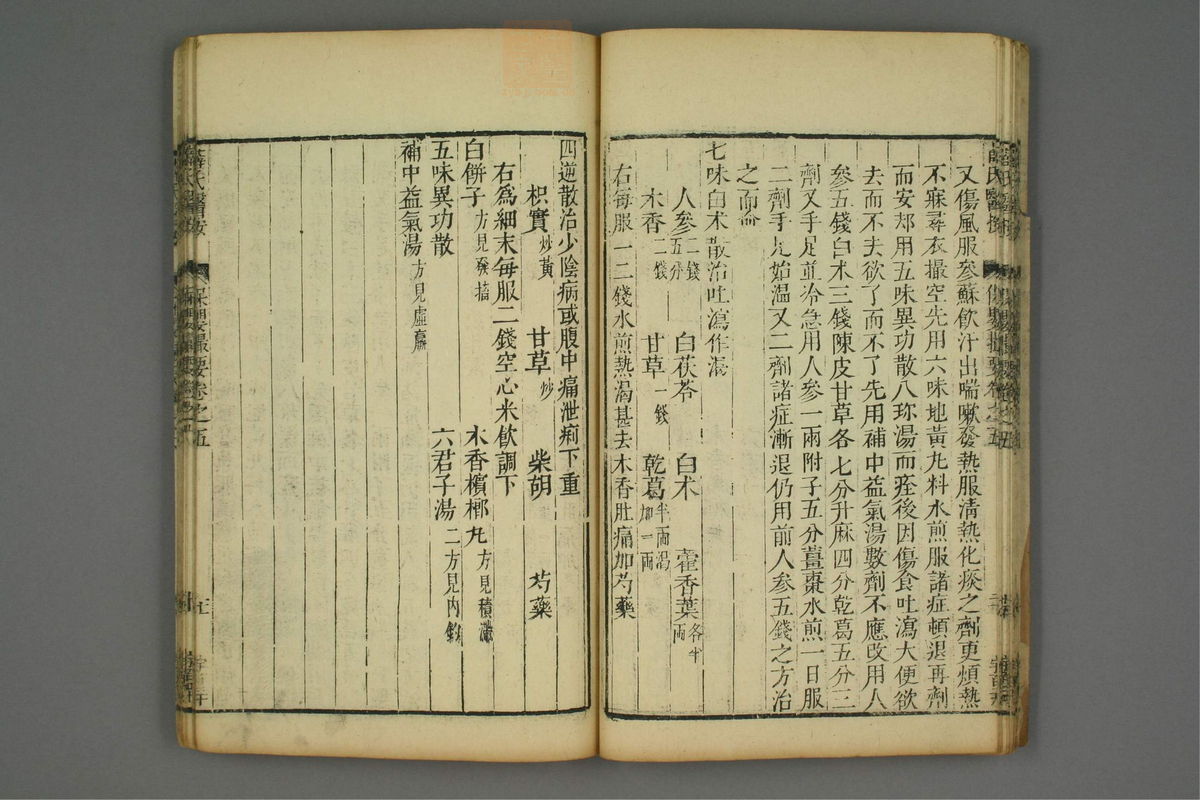 又傷風服參蘇飲汗出喘嗽發熱服清熱化痰之劑更煩熱
不寐尋衣撮空先用六味地黃丸料水煎服諸症頓退再劑
而安却用五味異功散八珍湯而痊後因傷食吐瀉大便欲
去而不去欲了而不了先用補中益氣湯數劑不應改用人
參五錢白术三錢陳皮甘草各七分升麻四分乾葛五分三
劑又手足並冷急用人參一兩附子五分薑棗水煎一日服
二劑手足始温又二劑諸症漸退仍用前人參五錢之方治
之而愈
七味白术散治吐瀉作渴
人參二錢五分 白茯苓 白术 藿香葉各半兩
木香二錢 甘草一錢 乾葛半兩渴加一兩
右每服一二錢水煎熱渴甚去木香肚痛加芍藥
四逆散治少陰病或腹中痛泄痢下重
枳實炒黃 甘草炒 柴胡 芍藥
右爲細末每服二錢空心米飲調下
白餅子方見發搐 木香檳榔丸方見積滯
五味異功散 六君子湯二方見內釣
補中益氣湯方見虛羸
薛氏醫按
保嬰撮要卷之五